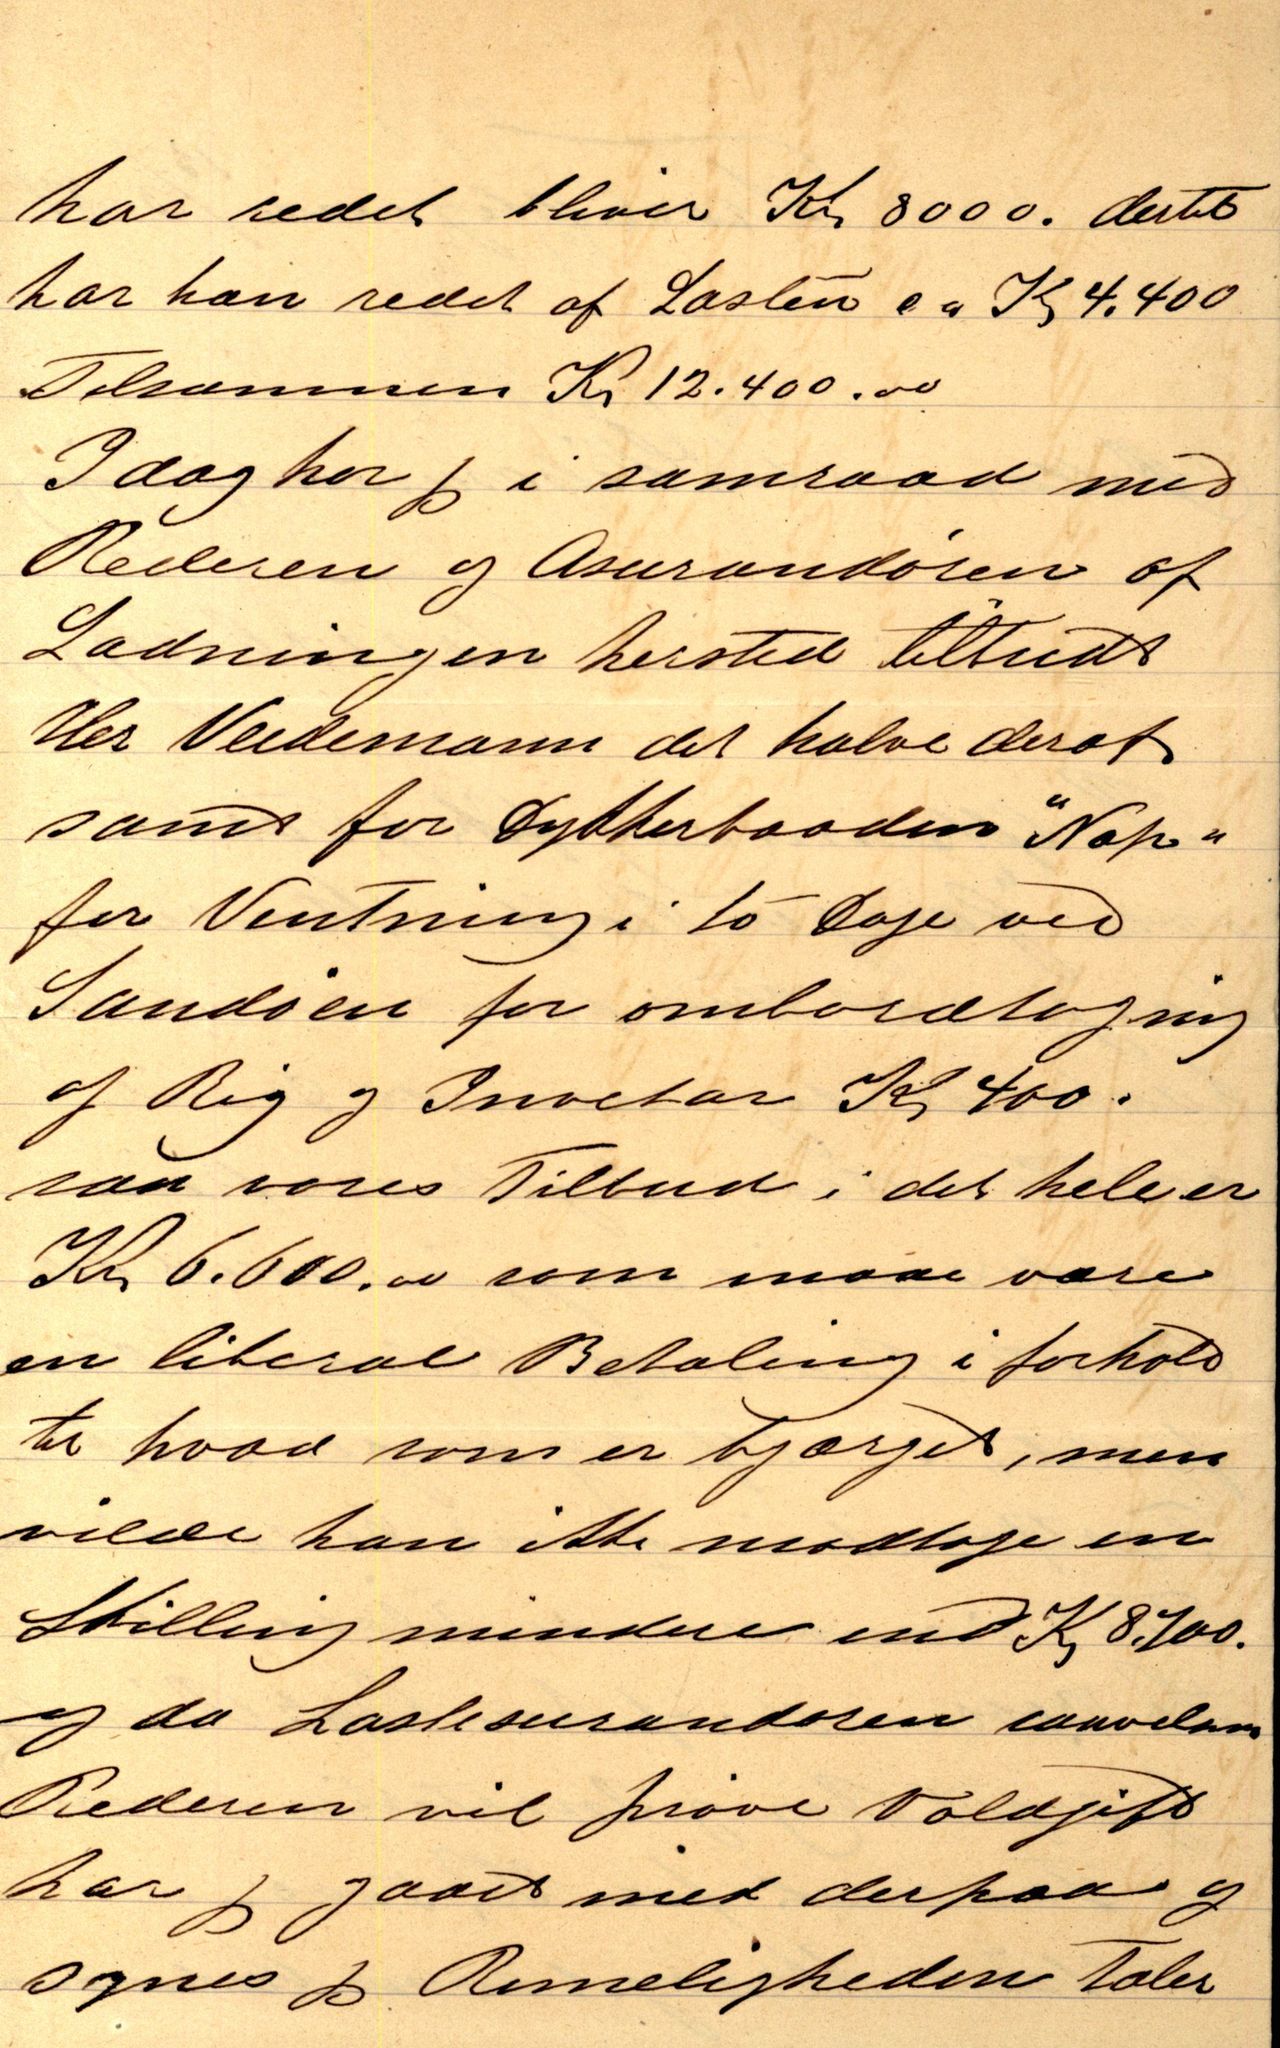 har redet bliver Kr 8000. dertil
har han redet af Lasten ca Kr 4.400
Tilsammen Kr 12.400.00
I dag har jeg i samraad med
Rederen og Asurandøren af
Ladningen hersted tilbudt
Her Veedemann det halve deraf
samt for Dykkerbaaden "Nap"
for Ventning i to Dage ved
Sandøen for ombordtagning
af Rig og Invetar Kr 400.
saa vores Tilbud i det hele er
Kr 6.600.00 som maae være
en liberal Betaling i forhold
til hvad som er bjærget, men
vilde han ikke modtage en
Skilling mindere end Kr 8.700.
og da Lastesurandøren saavelsom
Rederen vil prøve Voldgift
har jeg gaaet med derpaa og
synes jeg Rimeligheden taler